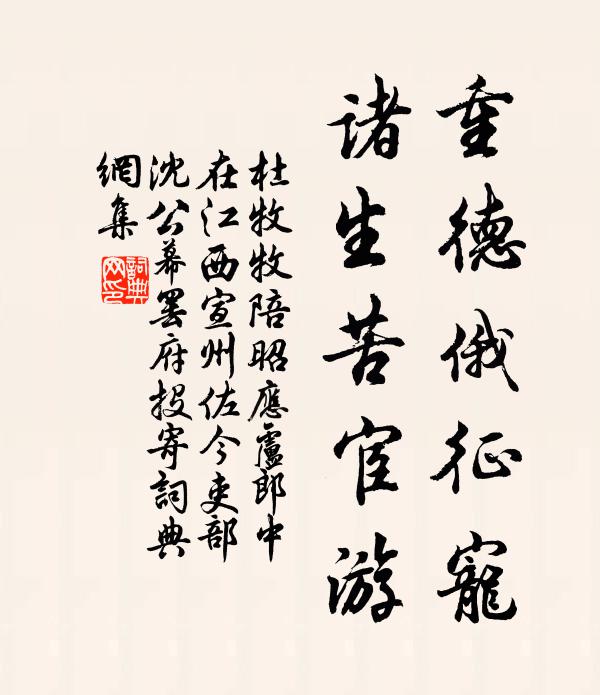 重德俄征寵
諸生苦宦游
杜牧牧陪昭應盧郎中
在江西宣州佐今吏部
沈公幕罷府投寄詞典
網集
詞典網印